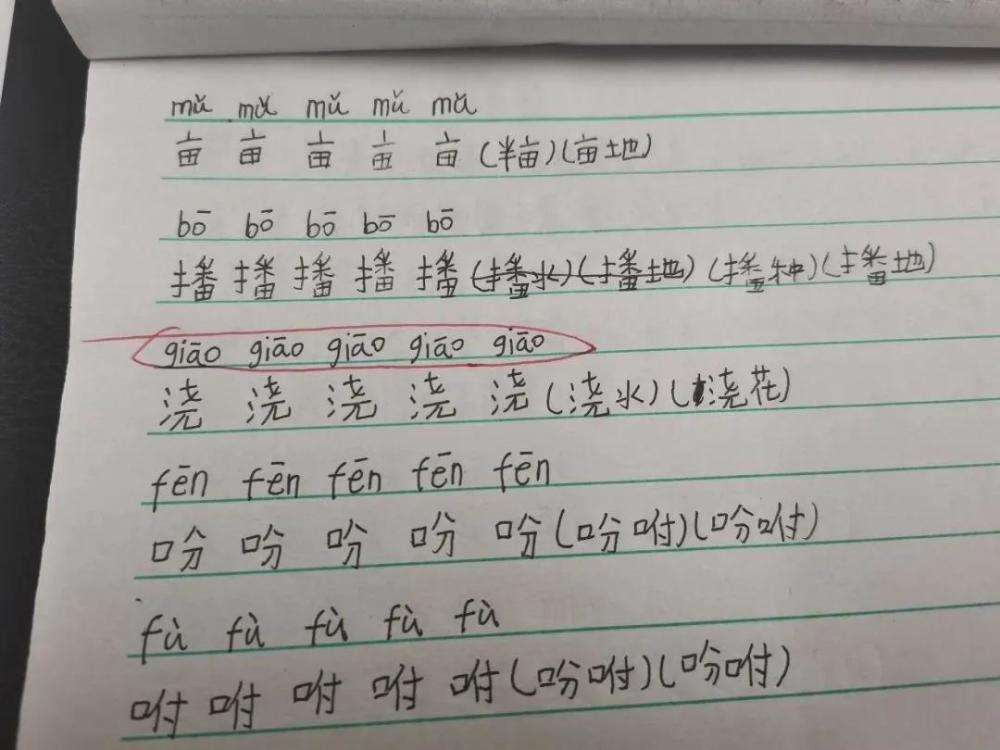 mǔ mǔ mǔ mǔ mǔ
亩 亩 亩 亩 亩 (半亩)(亩地)
bō bō bō bō bō
播 播 播 播 播 (播水)(播地) (播种)(播地)
giāo giāo giāo giāo giāo
浇 浇 浇 浇 浇 (浇水) (浇花)
fēn fēn fēn fēn fēn
吩 吩 吩 吩 吩 (吩咐)(吩咐)
fù fù fù fù fù
咐 咐 咐 咐 咐 (吩咐)(吩咐)